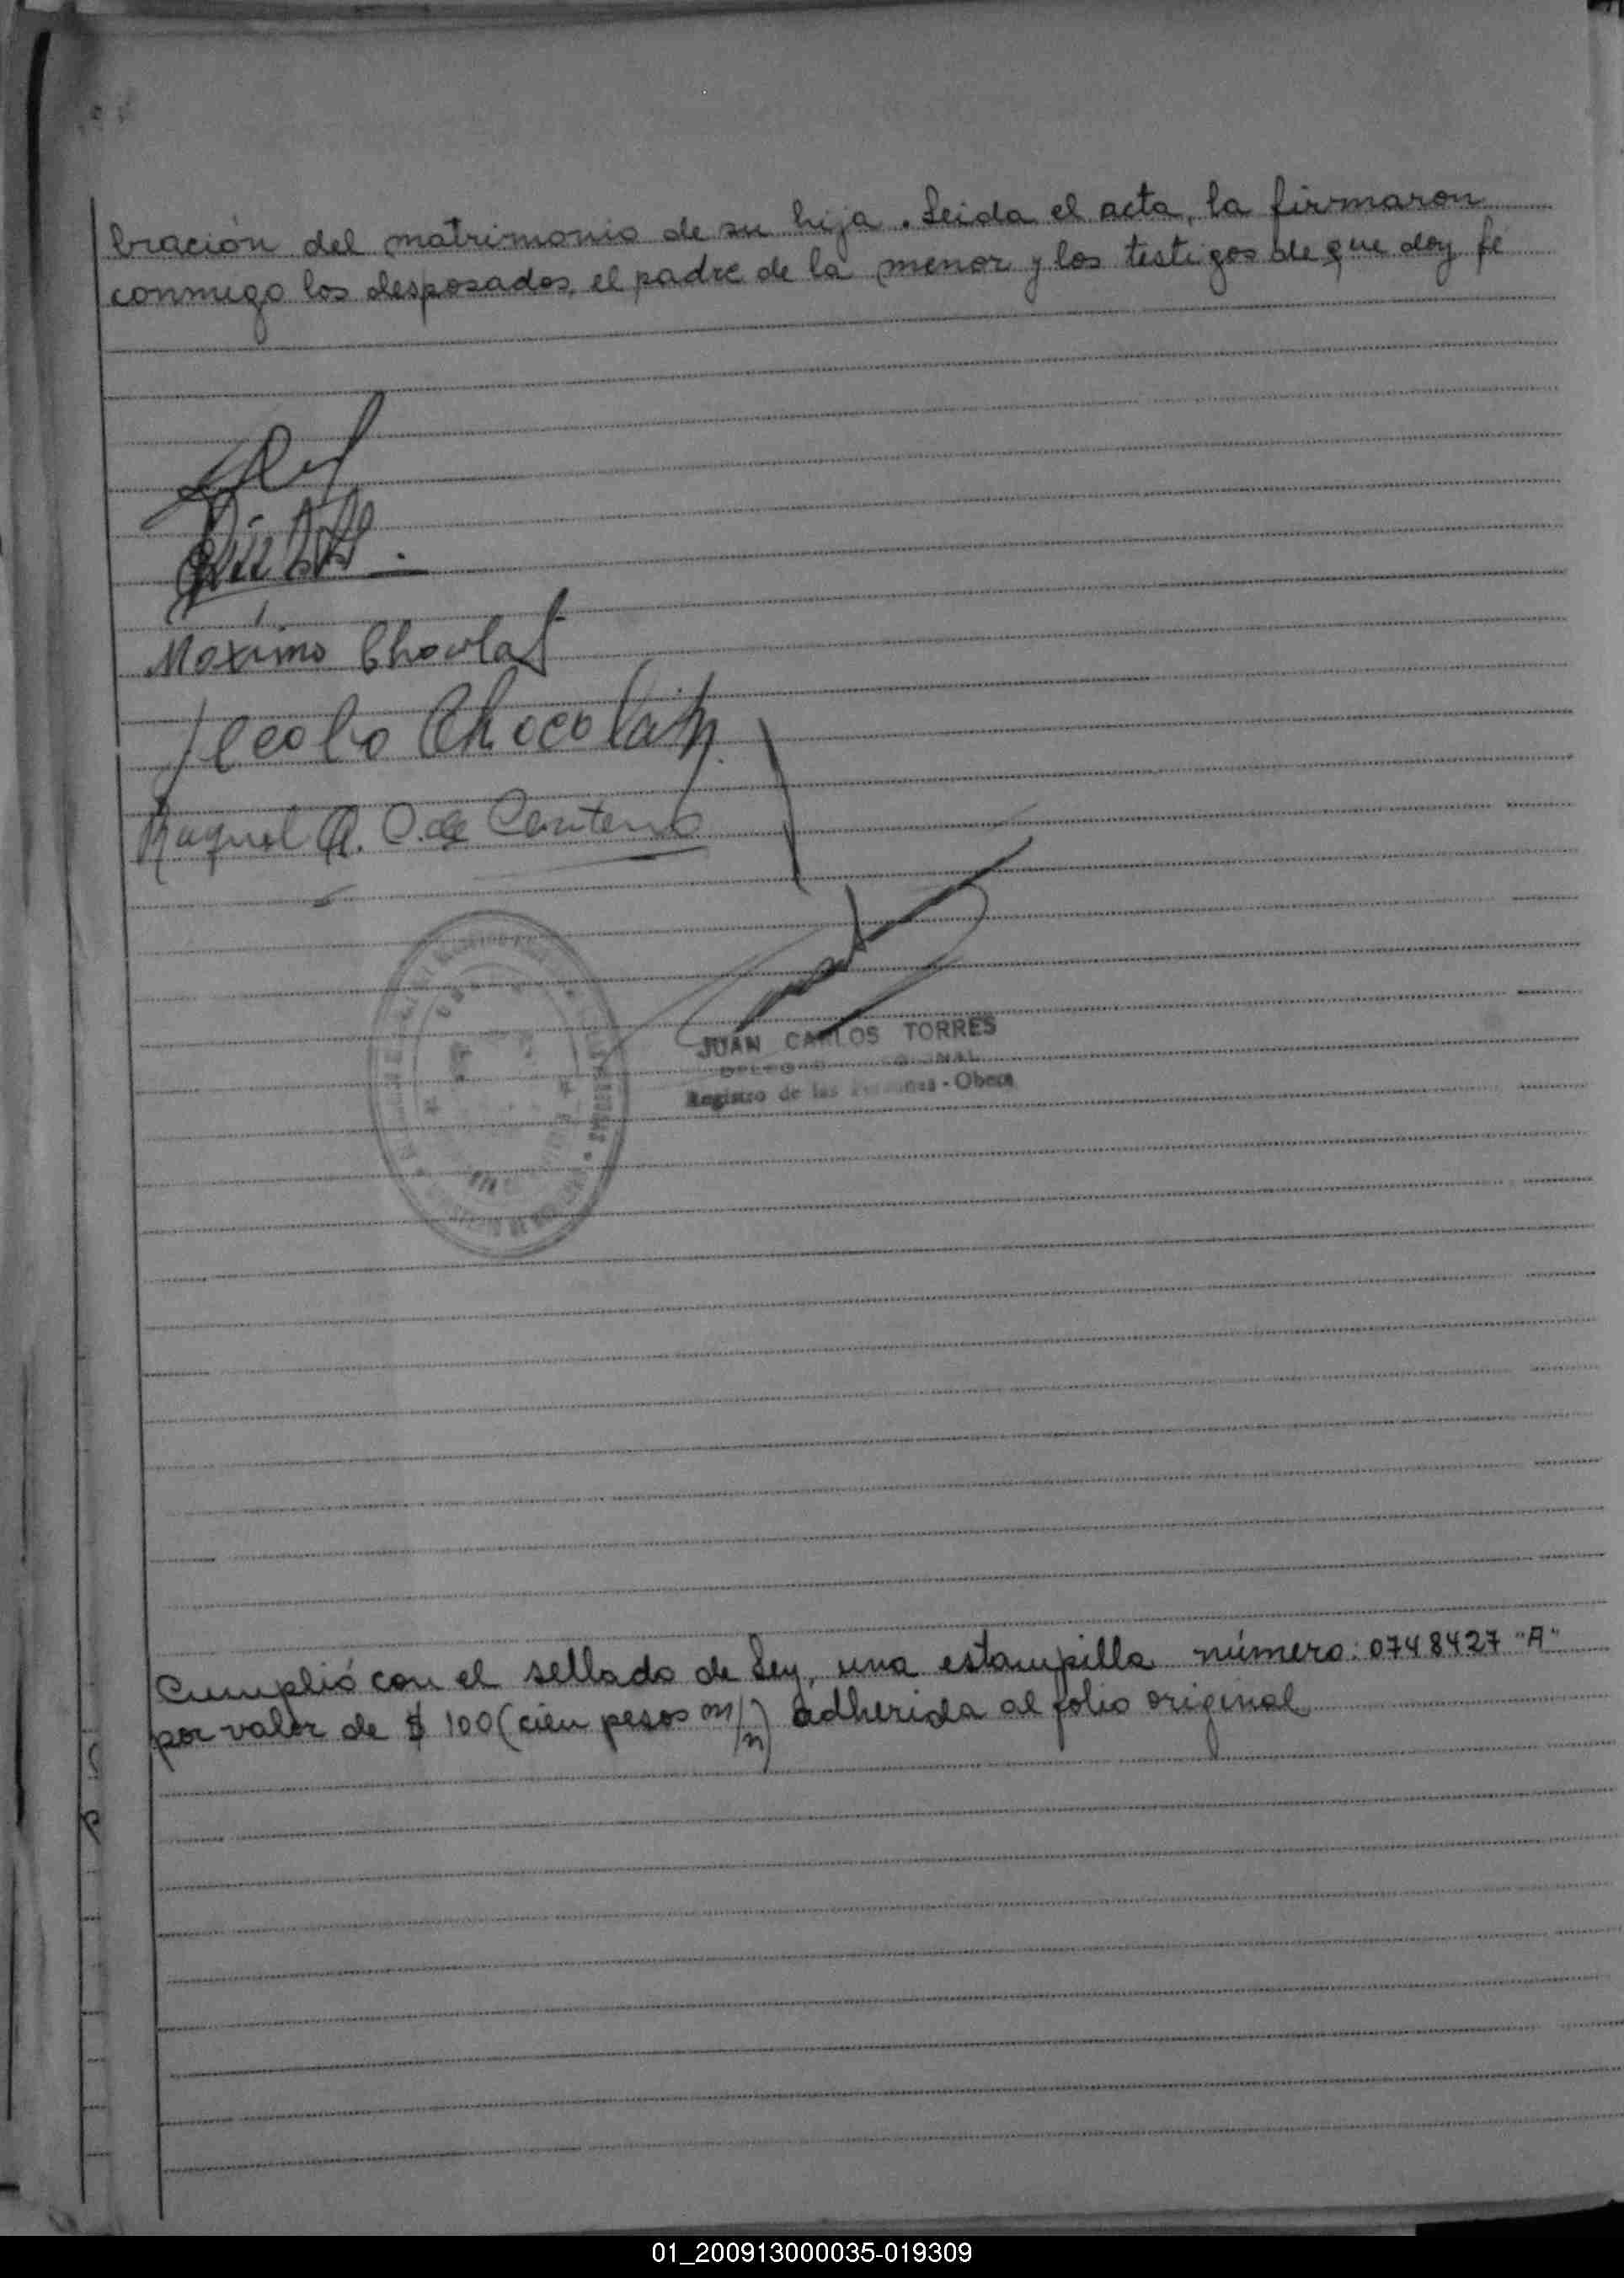 bración del matrimonio de su hija. Leida el acta, la firmaron
conmigo los desposados, el padre de la menor y los testigos de que doy fé
Máximo Chocolat
Chocolat
Raquel A. C. de Centeno
JUAN CARLOS TORRES
Registro de las Personas - Oberá
Cumplió con el sellado de Ley, una estampilla número: 0748427 "A"
por valor de $ 100 (cien pesos m/n) adherida al folio original
01_200913000035-019309